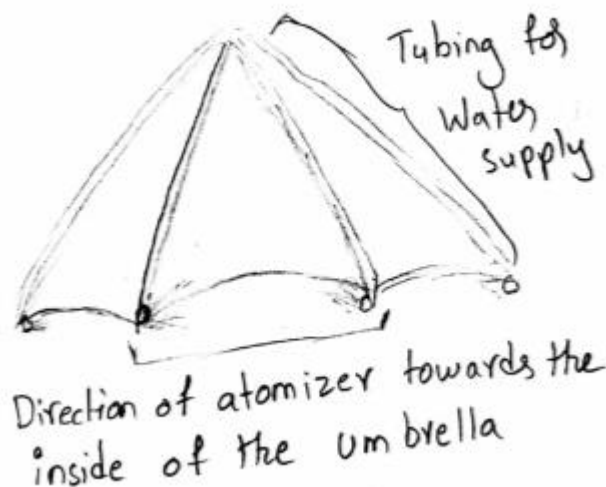 Tubing for
Water
supply
Direction of atomizer towards the
inside of the umbrella